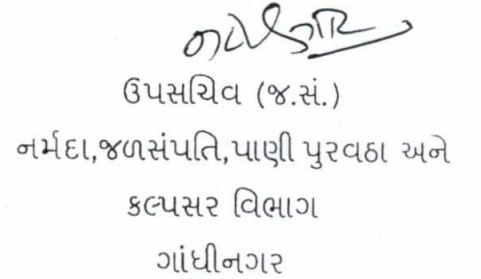 ઉપસચિવ (જ.સં.)
નર્મદા,જળસંપતિ,પાણી પુરવઠા અને
કલ્પસર વિભાગ
ગાંધીનગર